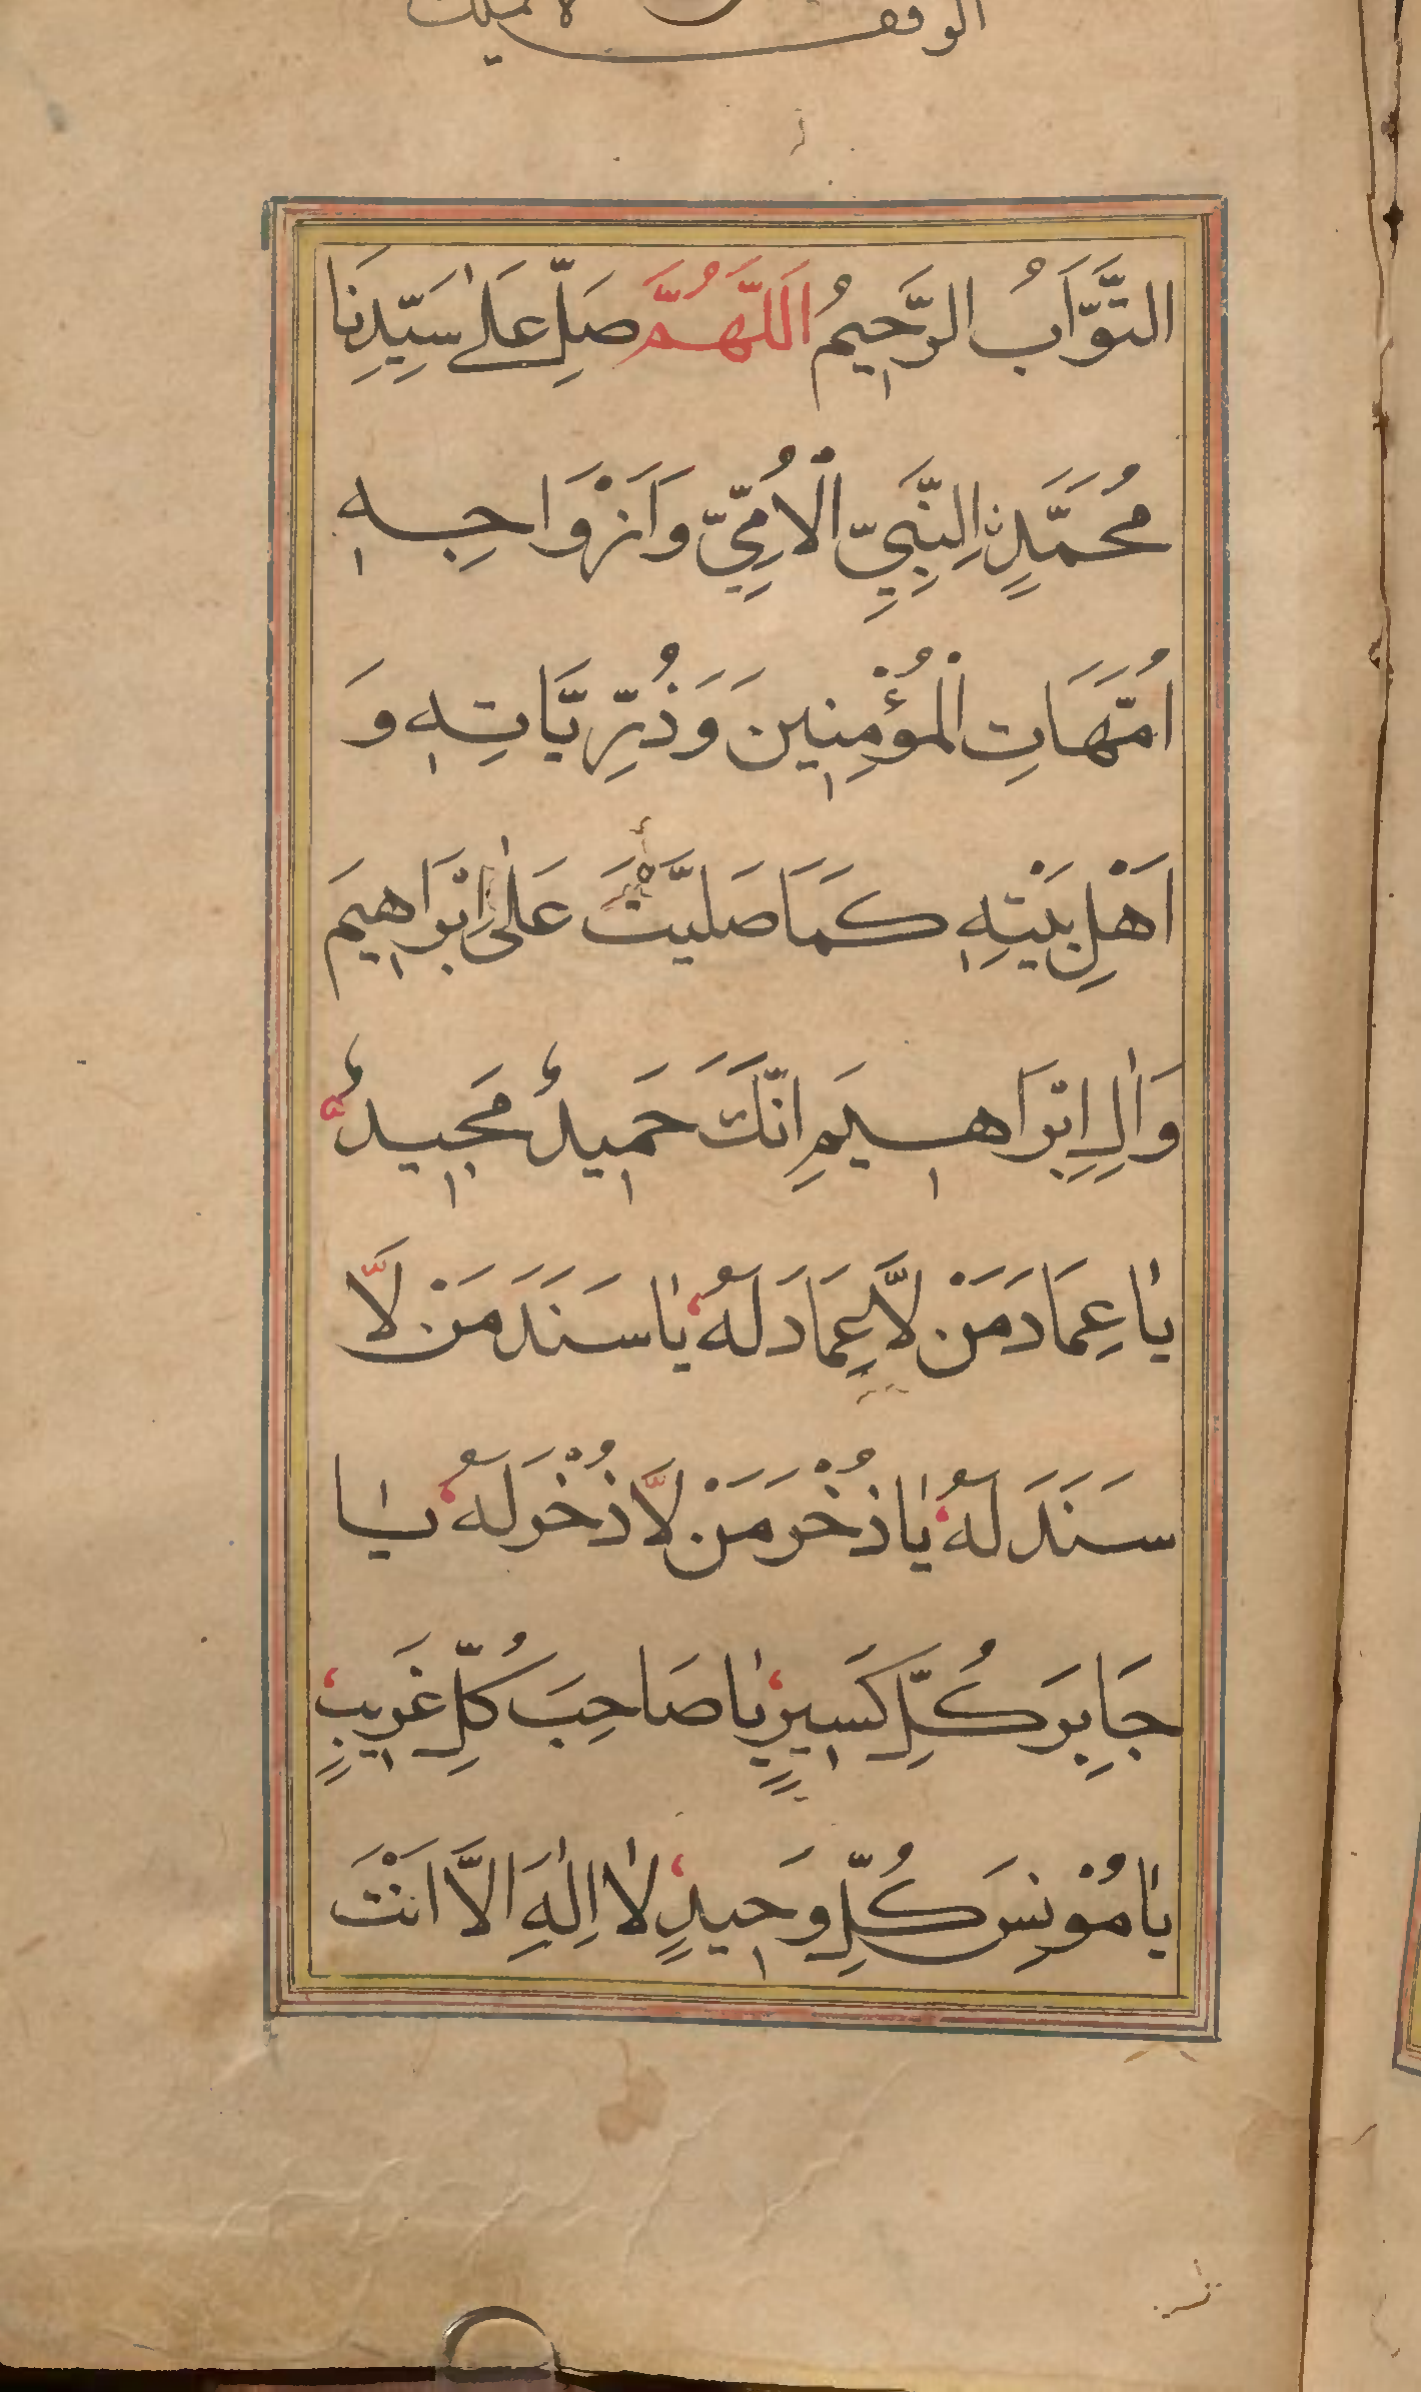 الوقف
التَّوَّابُ الرَّحِيمُ اَللَّهُمَّ صَلِّ عَلٰى سَيِّدِنَا
مُحَمَّدٍ اِلنَّبِيِّ الْاُمِّيِّ وَاَزْوَاجِهِ
اُمَّهَاتِ الْمُؤْمِنِينَ وَذُرِّيَّاتِهِ وَ
اَهْلِ بَيْتِهِ كَمَا صَلَيَّتَ عَلٰى اِبْرَاهِيمَ
وَاٰلِ اِبْرَاهِيمَ اِنَّكَ حَمِيدٌ مَجِيدٌ
يٰا عِمَادَ مَنْ لَّا عِمَادَ لَهُ يٰا سَنَدَ مَنْ لَّا
سَنَدَ لَهُ يٰا ذُخْرَ مَنْ لَّا ذُخْرَ لَهُ يٰا
جَابِرَ كُلِّ كَسِيرٍ يٰا صَاحِبَ كُلِّ غَرِيبٍ
يٰا مُوْنِسَ كُلِّ وَحِيدٍ لٰا اِلٰهَ اِلَّا اَنْتَ